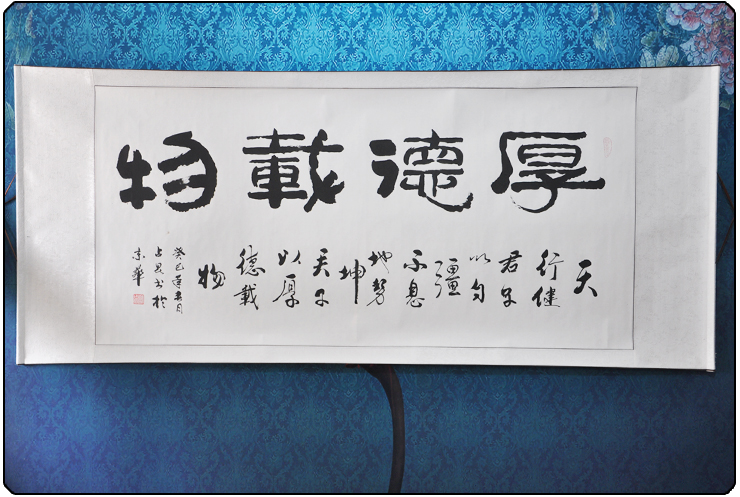 厚德載物
天
行健
君子
以自
彊
不息
地势
坤
君子
以厚
德載
物
癸巳月
占书於
京華